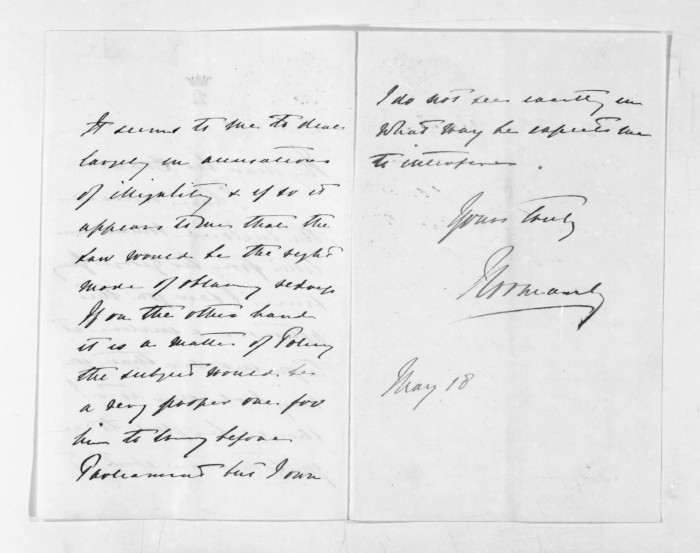 It seems to me to deal
largely in accusations
of illegality & if so it
appears to me that the
Law would be the right
mode of obtaining redress
If on the other hand
it is a matter of Policy
the subject would be
a very proper one for
him to bring before
Parliament but I own
I do not see exactly in
what way he expects me
to interfere.
Yours truly
Normanby
May 18